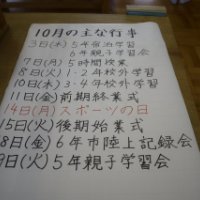 10月の主な行事
3日(木)5年宿泊学習
6年親子学習会
7日(月)5時間授業
8日(火)1・2年校外学習
10日(木)3・4年校外学習
11日(金)前期終業式
14日(月)スポーツの日
15日(火)後期始業式
8日(金)6年市陸上記録会
9日(火)5年親子学習会